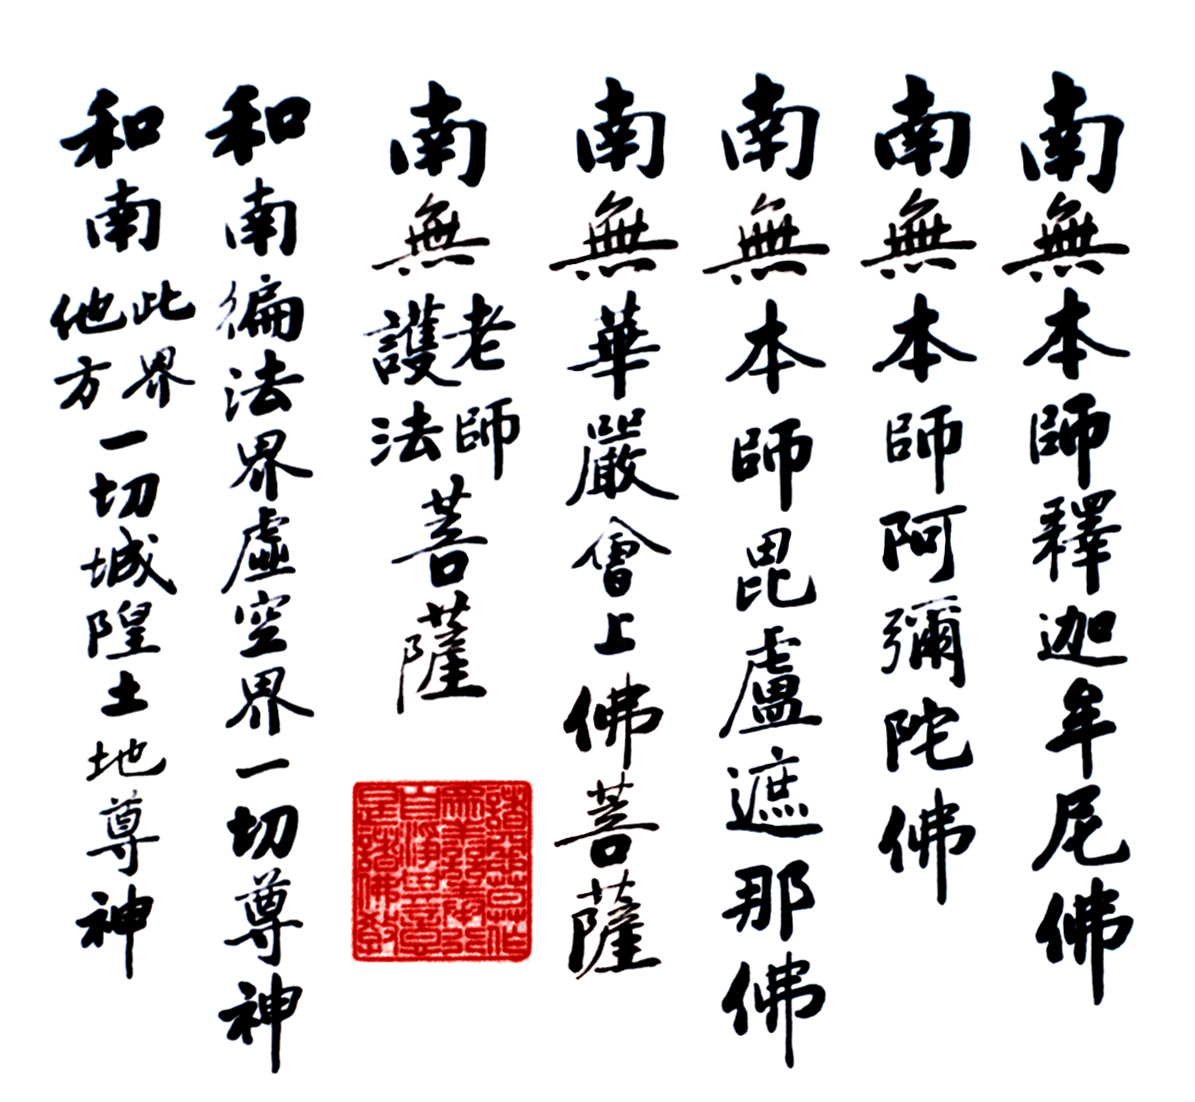 南無本師釋迦牟尼佛
南無本師阿彌陀佛
南無本師毘盧遮那佛
南無華嚴會上佛菩薩
南無老師護法菩薩
和南徧法界虛空界一切尊神
和南此界他方一切城隍土地尊神
諸惡莫作
眾善奉行
自淨其意
是諸佛教